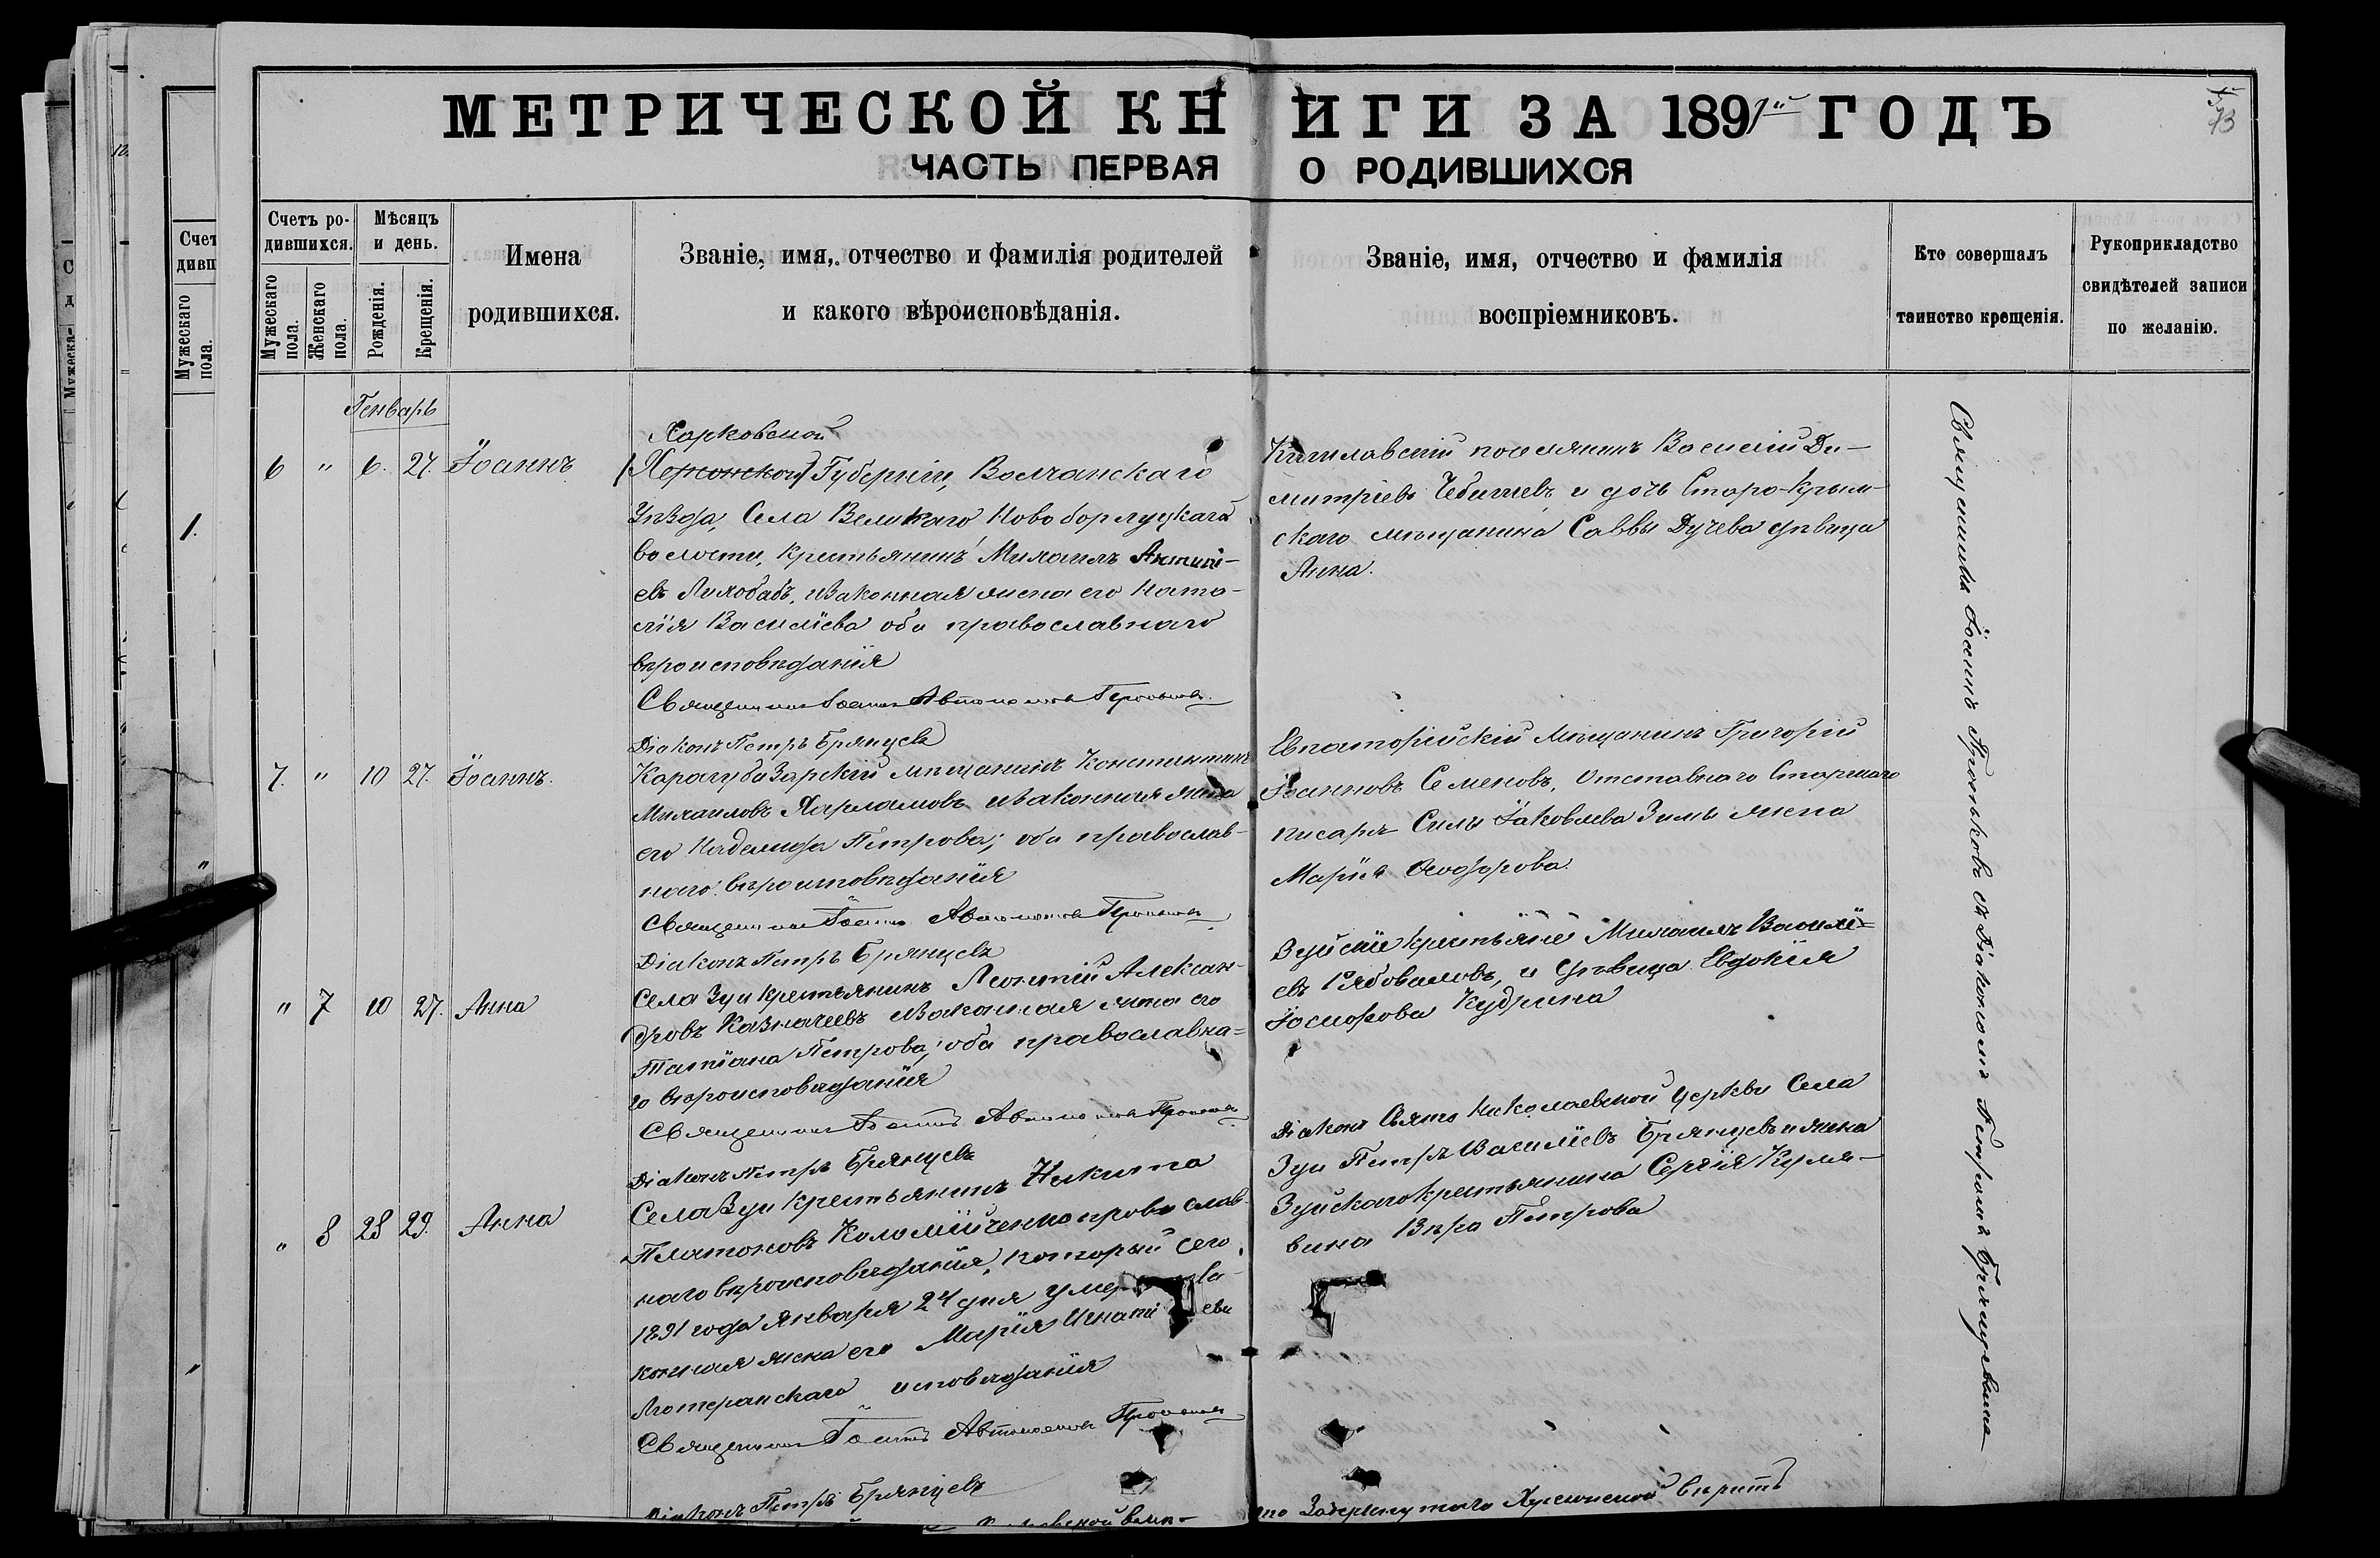 МЕТРИЧЕСКОЙ КНИГИ ЗА 1891й ГОДЪ
ЧАСТЬ ПЕРВАЯ О РОДИВШИХСЯ
Счетъ родившихся.
Мужескаго пола.
Женскаго пола.
Мѣсяцъ и день.
Рожденія.
Крещенія.
Имена
родившихся.
Званіе, имя, отчество и фамилія родителей
и какого вѣроисповѣданія.
Званіе, имя, отчество и фамилія
воспріемниковъ.
Кто совершалъ
таинство крещенія.
Рукоприкладство
свидѣтелей записи
по желанію.
Генварь
6 " 6. 27. Іоаннъ
Харковской
(Херсонской) Губерніи, Волчанскаго
Уѣзда, Села Великаго Новоборлуцкаго
волости, Крестьянинъ Михаилъ
евъ Лихобабъ, и законная жена его Ната-
лія Василіева оба православнаго
вѣроисповѣданія
Священникъ Іоаннъ Автономовъ
Діаконъ Петръ Брянцевъ
Кишлавскій поселянинъ Василій Ди-
митріевъ и дочь Старо-Крым-
скаго мѣщанина Саввы Дучева дѣвица
Анна.
7. " 10 27. Іоаннъ.
Карасубазарскій мѣщанинъ Константинъ
Михаиловъ Харламовъ и законная жена
его Надежда Петрова; оба православ-
наго вѣроисповѣданія
Священникъ Іоаннъ Автономовъ
Діаконъ Петръ Брянцевъ
Евпаторійскій Мѣщанинъ Григорій
Іоанновъ Семеновъ, Отставнаго Старшаго
писаря Силы Іаковлева Зимы жена
Марія Ѳеодорова.
" 7 10 27. Анна
Села Зуи крестьянинъ Леонтій Алексан-
дровъ Казначеевъ и законная жена его
Татіана Петрова; оба православна-
го вѣроисповѣданія
Священникъ Іоаннъ Автономовъ
Діаконъ Петръ Брянцевъ
Зуйскіе крестьяне Михаилъ Василі-
евъ Рябоваловъ, и дѣвица Евдокія
Іосифова Кудрина
" 8 28 29. Анна
Села Зуи Крестьянинъ Никита
Платоновъ Коломійченко православ-
наго вѣроисповѣданія, который сего
1891 года Января 24 дня умер за-
конная жена его Марія Игнатіева
Лютеранскаго исповѣданія
Священникъ Іоаннъ Автономовъ
Діаконъ Петръ Брянцевъ
Діаконъ Свято Николаевской Церкви Села
Зуи Петръ Василіевъ Брянцевъ и жена
Зуйскаго крестьянина Сергія
вина Вѣра Петрова
Священникъ Іоаннъ съ Діакономъ Петромъ Брянцевымъ
вѣрить